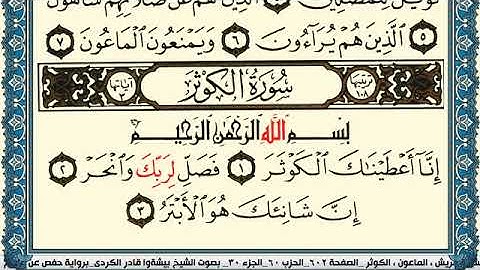 فَوَيۡلٞ لِّلۡمُصَلِّينَ ٤ ٱلَّذِينَ هُمۡ عَن صَلَاتِهِمۡ سَاهُونَ
٥ ٱلَّذِينَ هُمۡ يُرَآءُونَ ٦ وَيَمۡنَعُونَ ٱلۡمَاعُونَ ٧
ترتيبها ١٠٨ سُورَةُ الكَوْثَر آياتها ٣
بِسۡمِ ٱللَّهِ ٱلرَّحۡمَٰنِ ٱلرَّحِيمِ
إِنَّآ أَعۡطَيۡنَٰكَ ٱلۡكَوۡثَرَ ١ فَصَلِّ لِرَبِّكَ وَٱنۡحَرۡ ٢
إِنَّ شَانِئَكَ هُوَ ٱلۡأَبۡتَرُ ٣
قريش ، الماعون ، الكوثر _الصفحة ٦٠٢_الحزب ٦٠_الجزء ٣٠_ بصوت الشيخ بيشةوا قادر الكردي_برواية حفص عن